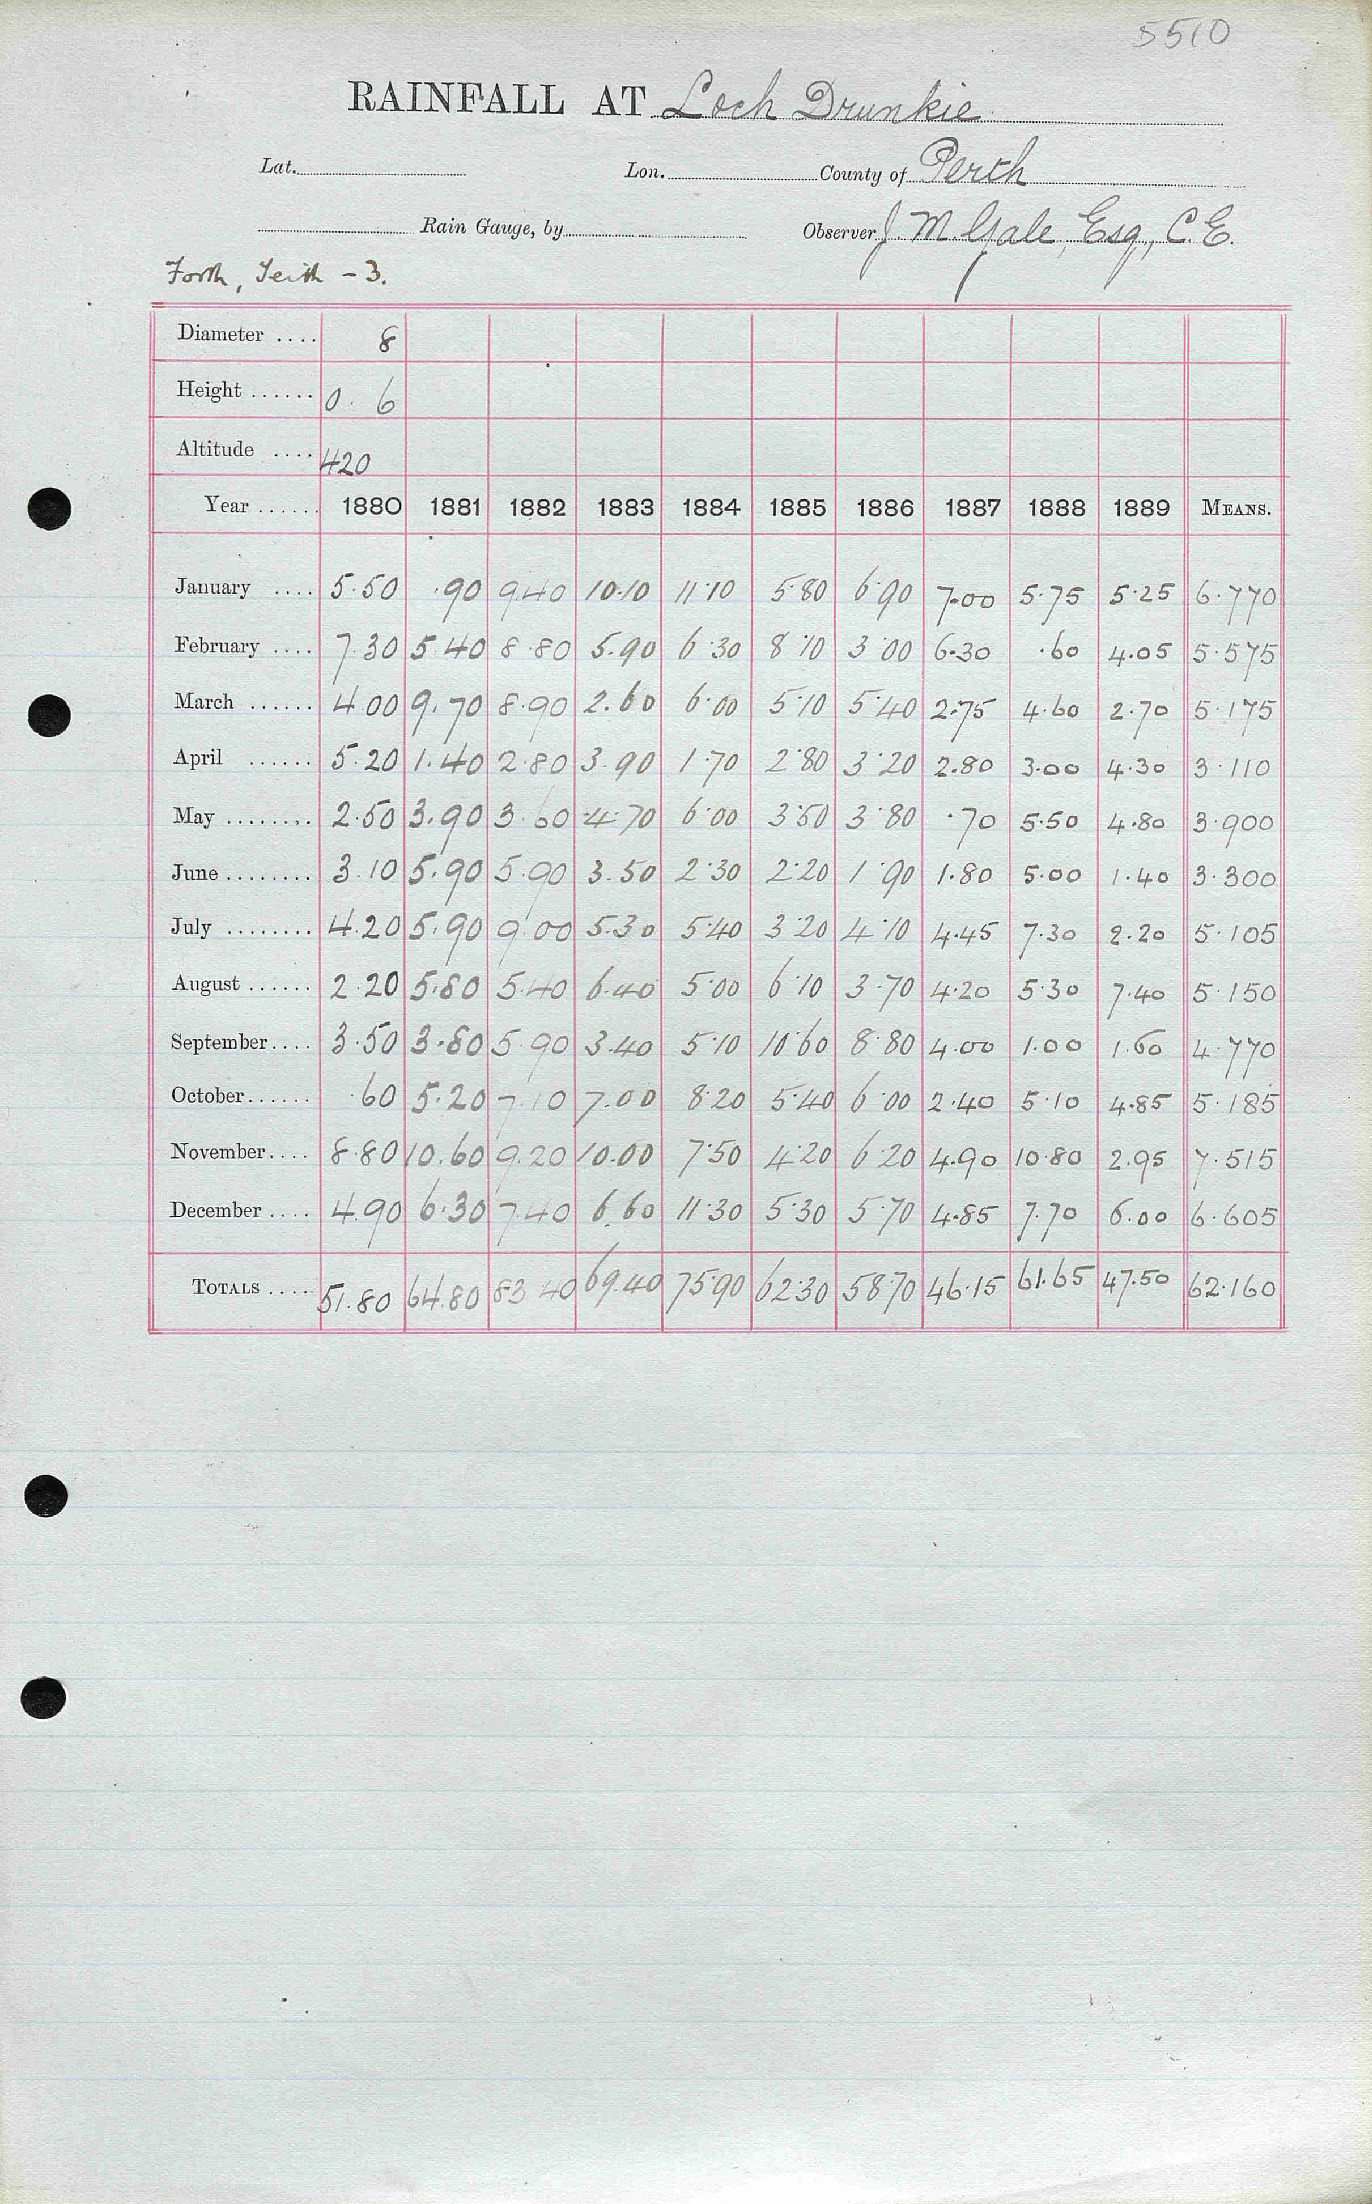 5510
RAINFALL AT Loch Drunkie
Lat. Lon. County of Perth
Rain Gauge, by Observer J. M. Gale, Esq, C.E.
Forth, Teith - 3.
Diameter .... 8
Height ...... 0. 6
Altitude .... 420
Year ...... 1880 1881 1882 1883 1884 1885 1886 1887 1888 1889 MEANS.
January .... 5.50 .90 9.40 10.10 11.10 5.80 6.90 7.00 5.75 5.25 6.770
February .... 7.30 5.40 8.80 5.90 6.30 8.10 3.00 6.30 .60 4.05 5.575
March ...... 4.00 9.70 8.90 2.60 6.00 5.10 5.40 2.75 4.60 2.70 5.175
April ...... 5.20 1.40 2.80 3.90 1.70 2.80 3.20 2.80 3.00 4.30 3.110
May ........ 2.50 3.90 3.60 4.70 6.00 3.50 3.80 .70 5.50 4.80 3.900
June ........ 3.10 5.90 5.90 3.50 2.30 2.20 1.90 1.80 5.00 1.40 3.300
July ........ 4.20 5.90 9.00 5.30 5.40 3.20 4.10 4.45 7.30 2.20 5.105
August ...... 2.20 5.80 5.40 6.40 5.00 6.10 3.70 4.20 5.30 7.40 5.150
September.... 3.50 3.80 5.90 3.40 5.10 10.60 8.80 4.00 1.00 1.60 4.770
October...... .60 5.20 7.10 7.00 8.20 5.40 6.00 2.40 5.10 4.85 5.185
November.... 8.80 10.60 9.20 10.00 7.50 4.20 6.20 4.90 10.80 2.95 7.515
December .... 4.90 6.30 7.40 6.60 11.30 5.30 5.70 4.85 7.70 6.00 6.605
TOTALS .... 51.80 64.80 83.40 69.40 75.90 62.30 58.70 46.15 61.65 47.50 62.160